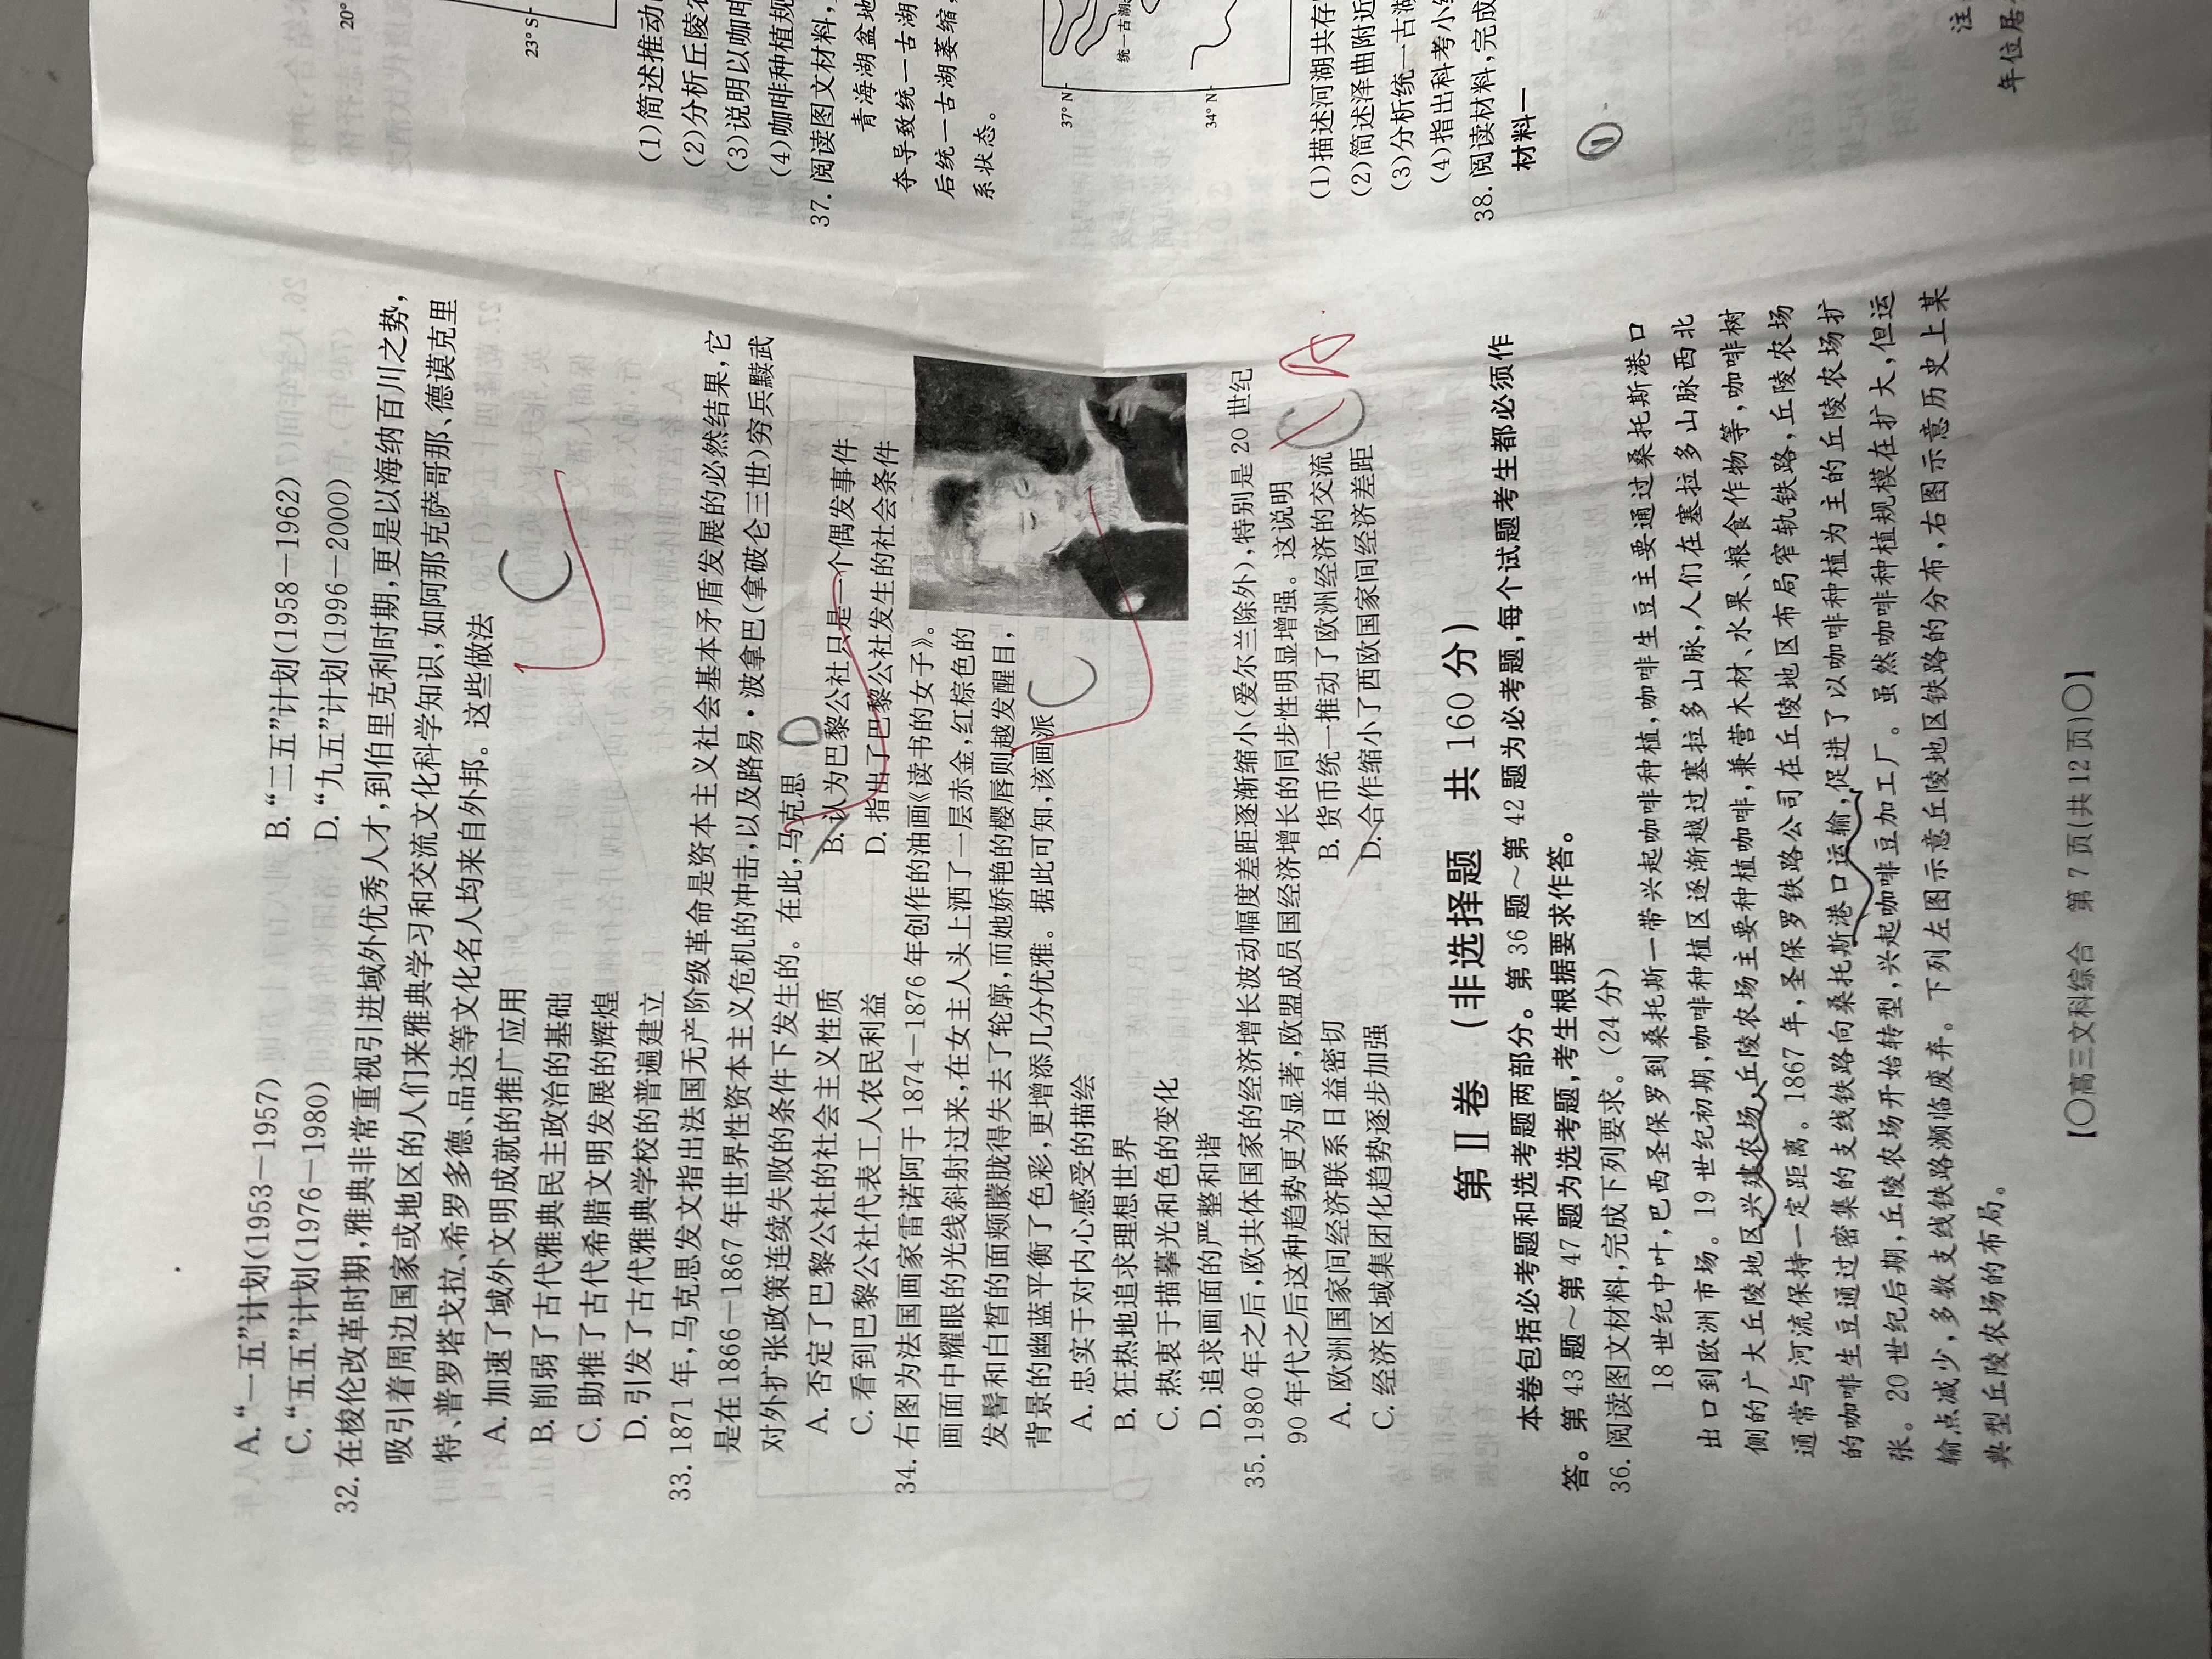 A.“一五”计划(1953—1957) B.“二五”计划(1958—1962)
C.“五五”计划(1976—1980) D.“九五”计划(1996—2000)
32. 在梭伦改革时期,雅典非常重视引进域外优秀人才,到伯里克利时期,更是以海纳百川之势,
吸引着周边国家或地区的人们来雅典学习和交流文化科学知识,如阿那克萨哥那、德谟克里
特、普罗塔戈拉、希罗多德、品达等文化名人均来自外邦。这些做法
C
A. 加速了域外文明成就的推广应用
B. 削弱了古代雅典民主政治的基础
C. 助推了古代希腊文明发展的辉煌
D. 引发了古代雅典学校的普遍建立
33. 1871 年,马克思发文指出法国无产阶级革命是资本主义社会基本矛盾发展的必然结果,它
是在 1866—1867 年世界性资本主义危机的冲击,以及路易·波拿巴(拿破仑三世)穷兵黩武
对外扩张政策连续失败的条件下发生的。在此,马克思 D
A. 否定了巴黎公社的社会主义性质 B. 认为巴黎公社只是一个偶发事件
C. 看到巴黎公社代表工人农民利益 D. 指出了巴黎公社发生的社会条件
34. 右图为法国画家雷诺阿于 1874—1876 年创作的油画《读书的女子》。
画面中耀眼的光线斜射过来,在女主人头上洒了一层赤金,红棕色的
发髻和白皙的面颊朦胧得失去了轮廓,而她娇艳的樱唇则越发醒目,
背景的幽蓝平衡了色彩,更增添几分优雅。据此可知,该画派 C
A. 忠实于对内心感受的描绘
B. 狂热地追求理想世界
C. 热衷于描摹光和色的变化
D. 追求画面的严整和谐
35. 1980 年之后,欧共体国家的经济增长波动幅度差距逐渐缩小(爱尔兰除外),特别是 20 世纪
90 年代之后这种趋势更为显著,欧盟成员国经济增长的同步性明显增强。这说明 C A
A. 欧洲国家间经济联系日益密切 B. 货币统一推动了欧洲经济的交流
C. 经济区域集团化趋势逐步加强 D. 合作缩小了西欧国家间经济差距
第Ⅱ卷 (非选择题 共 160 分)
本卷包括必考题和选考题两部分。第 36 题～第 42 题为必考题,每个试题考生都必须作
答。第 43 题～第 47 题为选考题,考生根据要求作答。
36. 阅读图文材料,完成下列要求。(24 分)
18 世纪中叶,巴西圣保罗到桑托斯一带兴起咖啡种植,咖啡生豆主要通过桑托斯港口
出口到欧洲市场。19 世纪初期,咖啡种植区逐渐越过塞拉多山脉,人们在塞拉多山脉西北
侧的广大丘陵地区兴建农场,丘陵农场主要种植咖啡,兼营木材、水果、粮食作物等,咖啡树
通常与河流保持一定距离。1867 年,圣保罗铁路公司在丘陵地区布局窄轨铁路,丘陵农场
的咖啡生豆通过密集的支线铁路向桑托斯港口运输,促进了以咖啡种植为主的丘陵农场扩
张。20 世纪后期,丘陵农场开始转型,兴起咖啡豆加工厂。虽然咖啡种植规模在扩大,但运
输点减少,多数支线铁路濒临废弃。下列左图示意丘陵地区铁路的分布,右图示意历史上某
典型丘陵农场的布局。
【〇高三文科综合 第 7 页(共 12 页)〇】
20°
23° S
(1)简述推动
(2)分析丘陵农
(3)说明以咖啡
(4)咖啡种植规
37. 阅读图文材料,
青海湖盆地
夺导致统一古湖
后统一古湖萎缩,
系状态。
37° N
统一古湖
34° N
(1)描述河湖共存
(2)简述泽曲附近
(3)分析统一古湖
(4)指出科考小
38. 阅读材料,完成
材料一
①
注
年位居